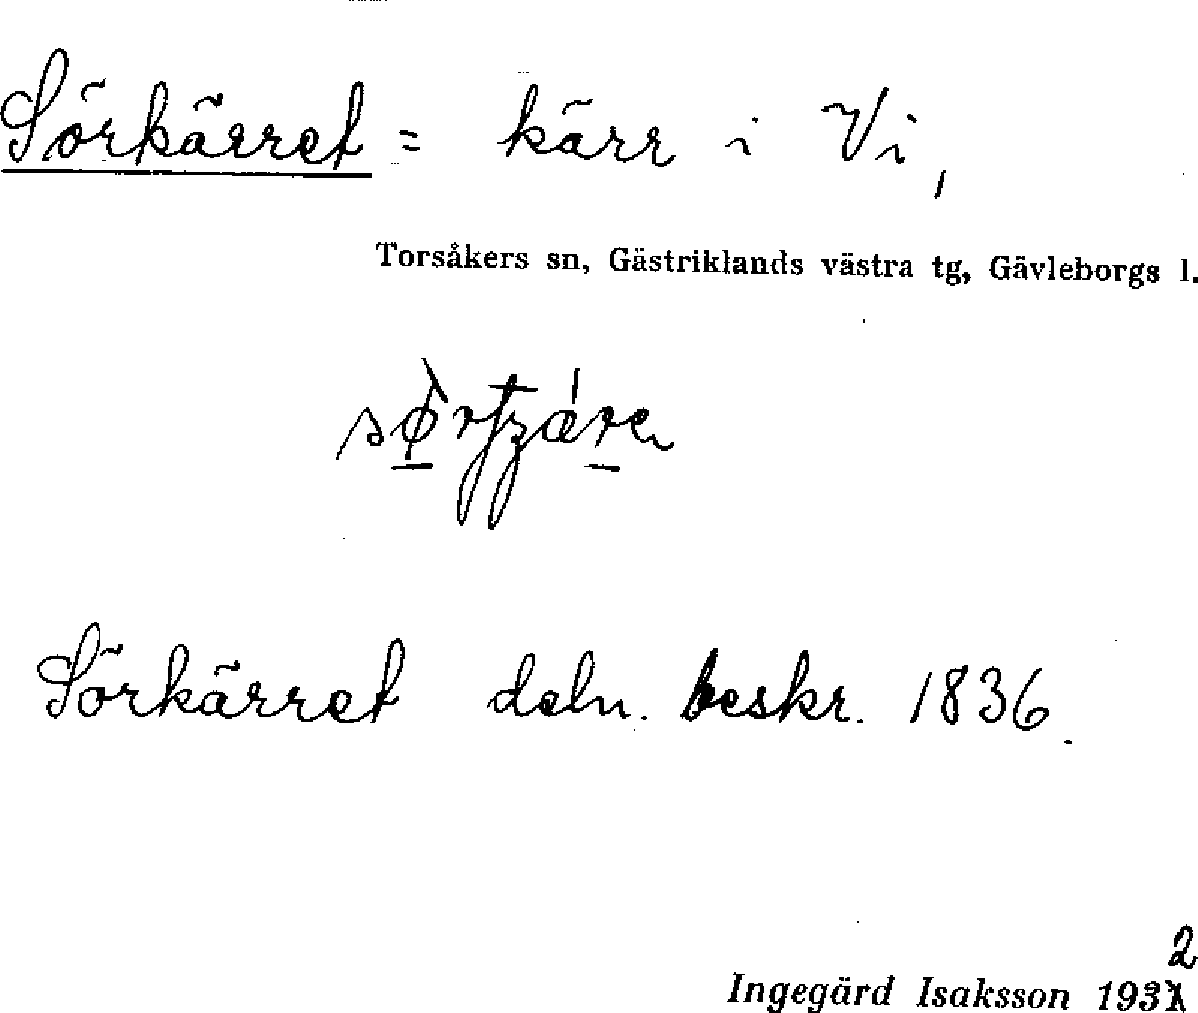 Sörkärret = kärr i Vi,
Torsåkers sn, Gästriklands västra tg, Gävleborgs l.
Sörkärret deln. beskr. 1836.
Ingegärd Isaksson 1932